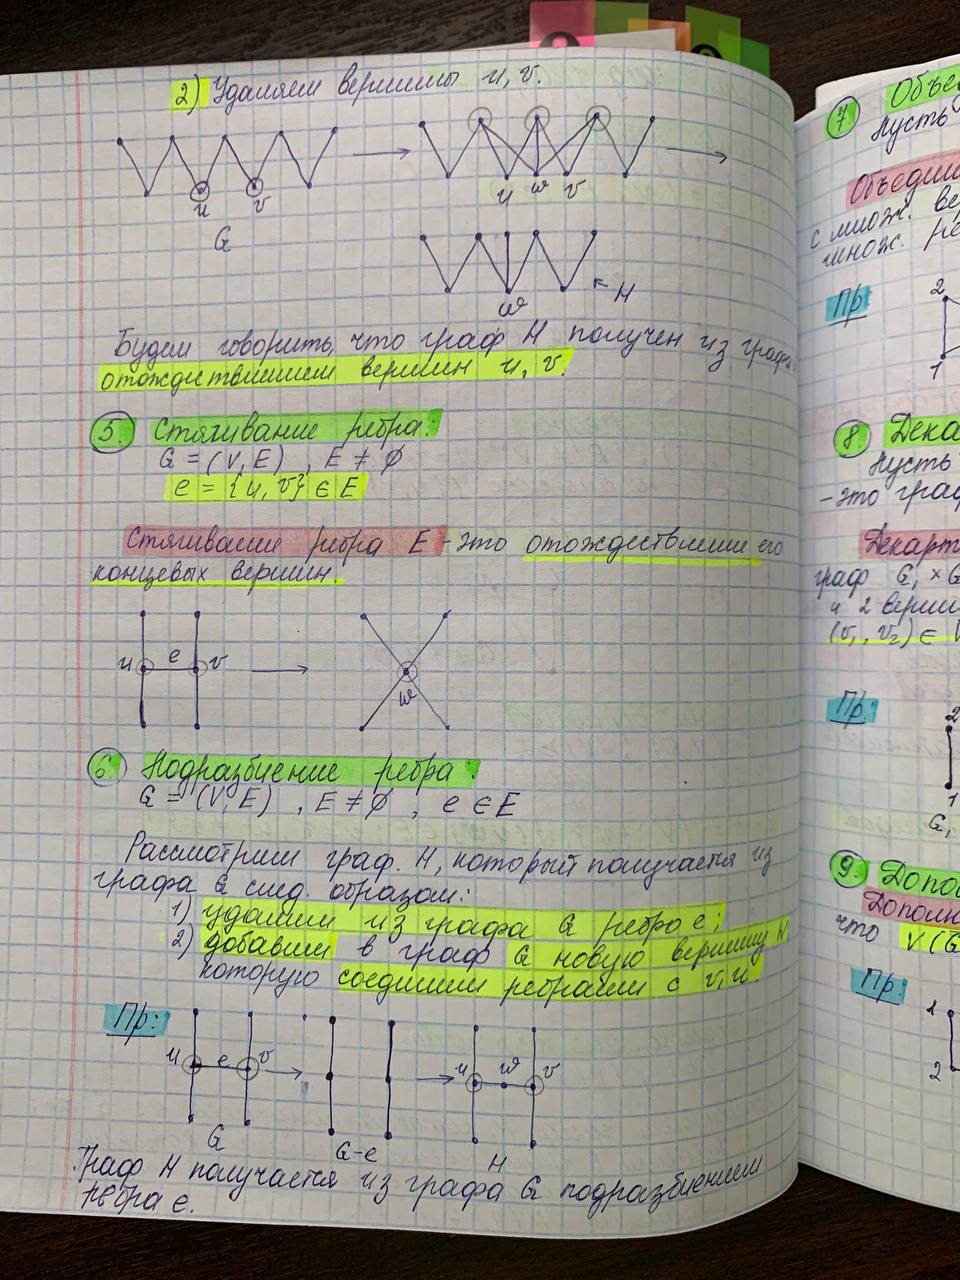 2) Удаляем вершины u, v.
u v
G
u w v
w
H
Будем говорить, что граф H получен из графа
отождествлением вершин u, v.
5. Стягивание ребра:
G = (V, E) , E ≠ ∅
e = {u, v} ∈ E
Стягивание ребра E - это отождествление его
концевых вершин.
u e v
w
6. Подразбиение ребра:
G = (V, E) , E ≠ ∅ , e ∈ E
Рассмотрим граф. H, который получается из
графа G след. образом:
1) удалим из графа G ребро e;
2) добавим в граф G новую вершину
которую соединим ребрами с v, u.
Пр:
u e v
u w v
G
G-e
H
Граф H получается из графа G подразбиением
ребра e.
7 Объе
Пусть
Объеди
с множ. ве
множ. ре
Пр
2
1
8. Дека
Пусть
- это граф
Декарт
граф G₁ × G
и 2 верши
(v₁, v₂) ∈ V
Пр:
2
1
G₁
9. Допо
Дополн
что V(G
Пр:
1
2